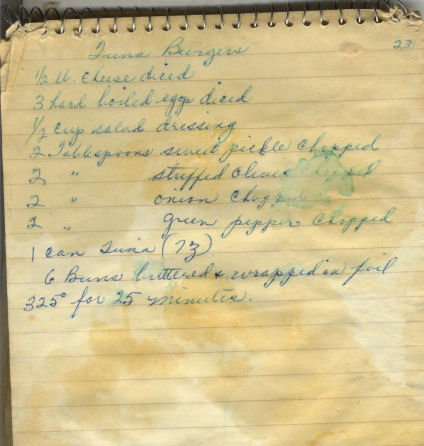 Tuna Burgers 23
1/2 lb. cheese diced
3 hard boiled eggs diced
1/2 cup salad dressing
2 Tablespoons sweet pickle chopped
2 " stuffed olives chopped
2 " onion chopped
2 " green pepper chopped
1 can Tuna (7 z)
6 Buns buttered & wrapped in foil
325° for 25 minutes.